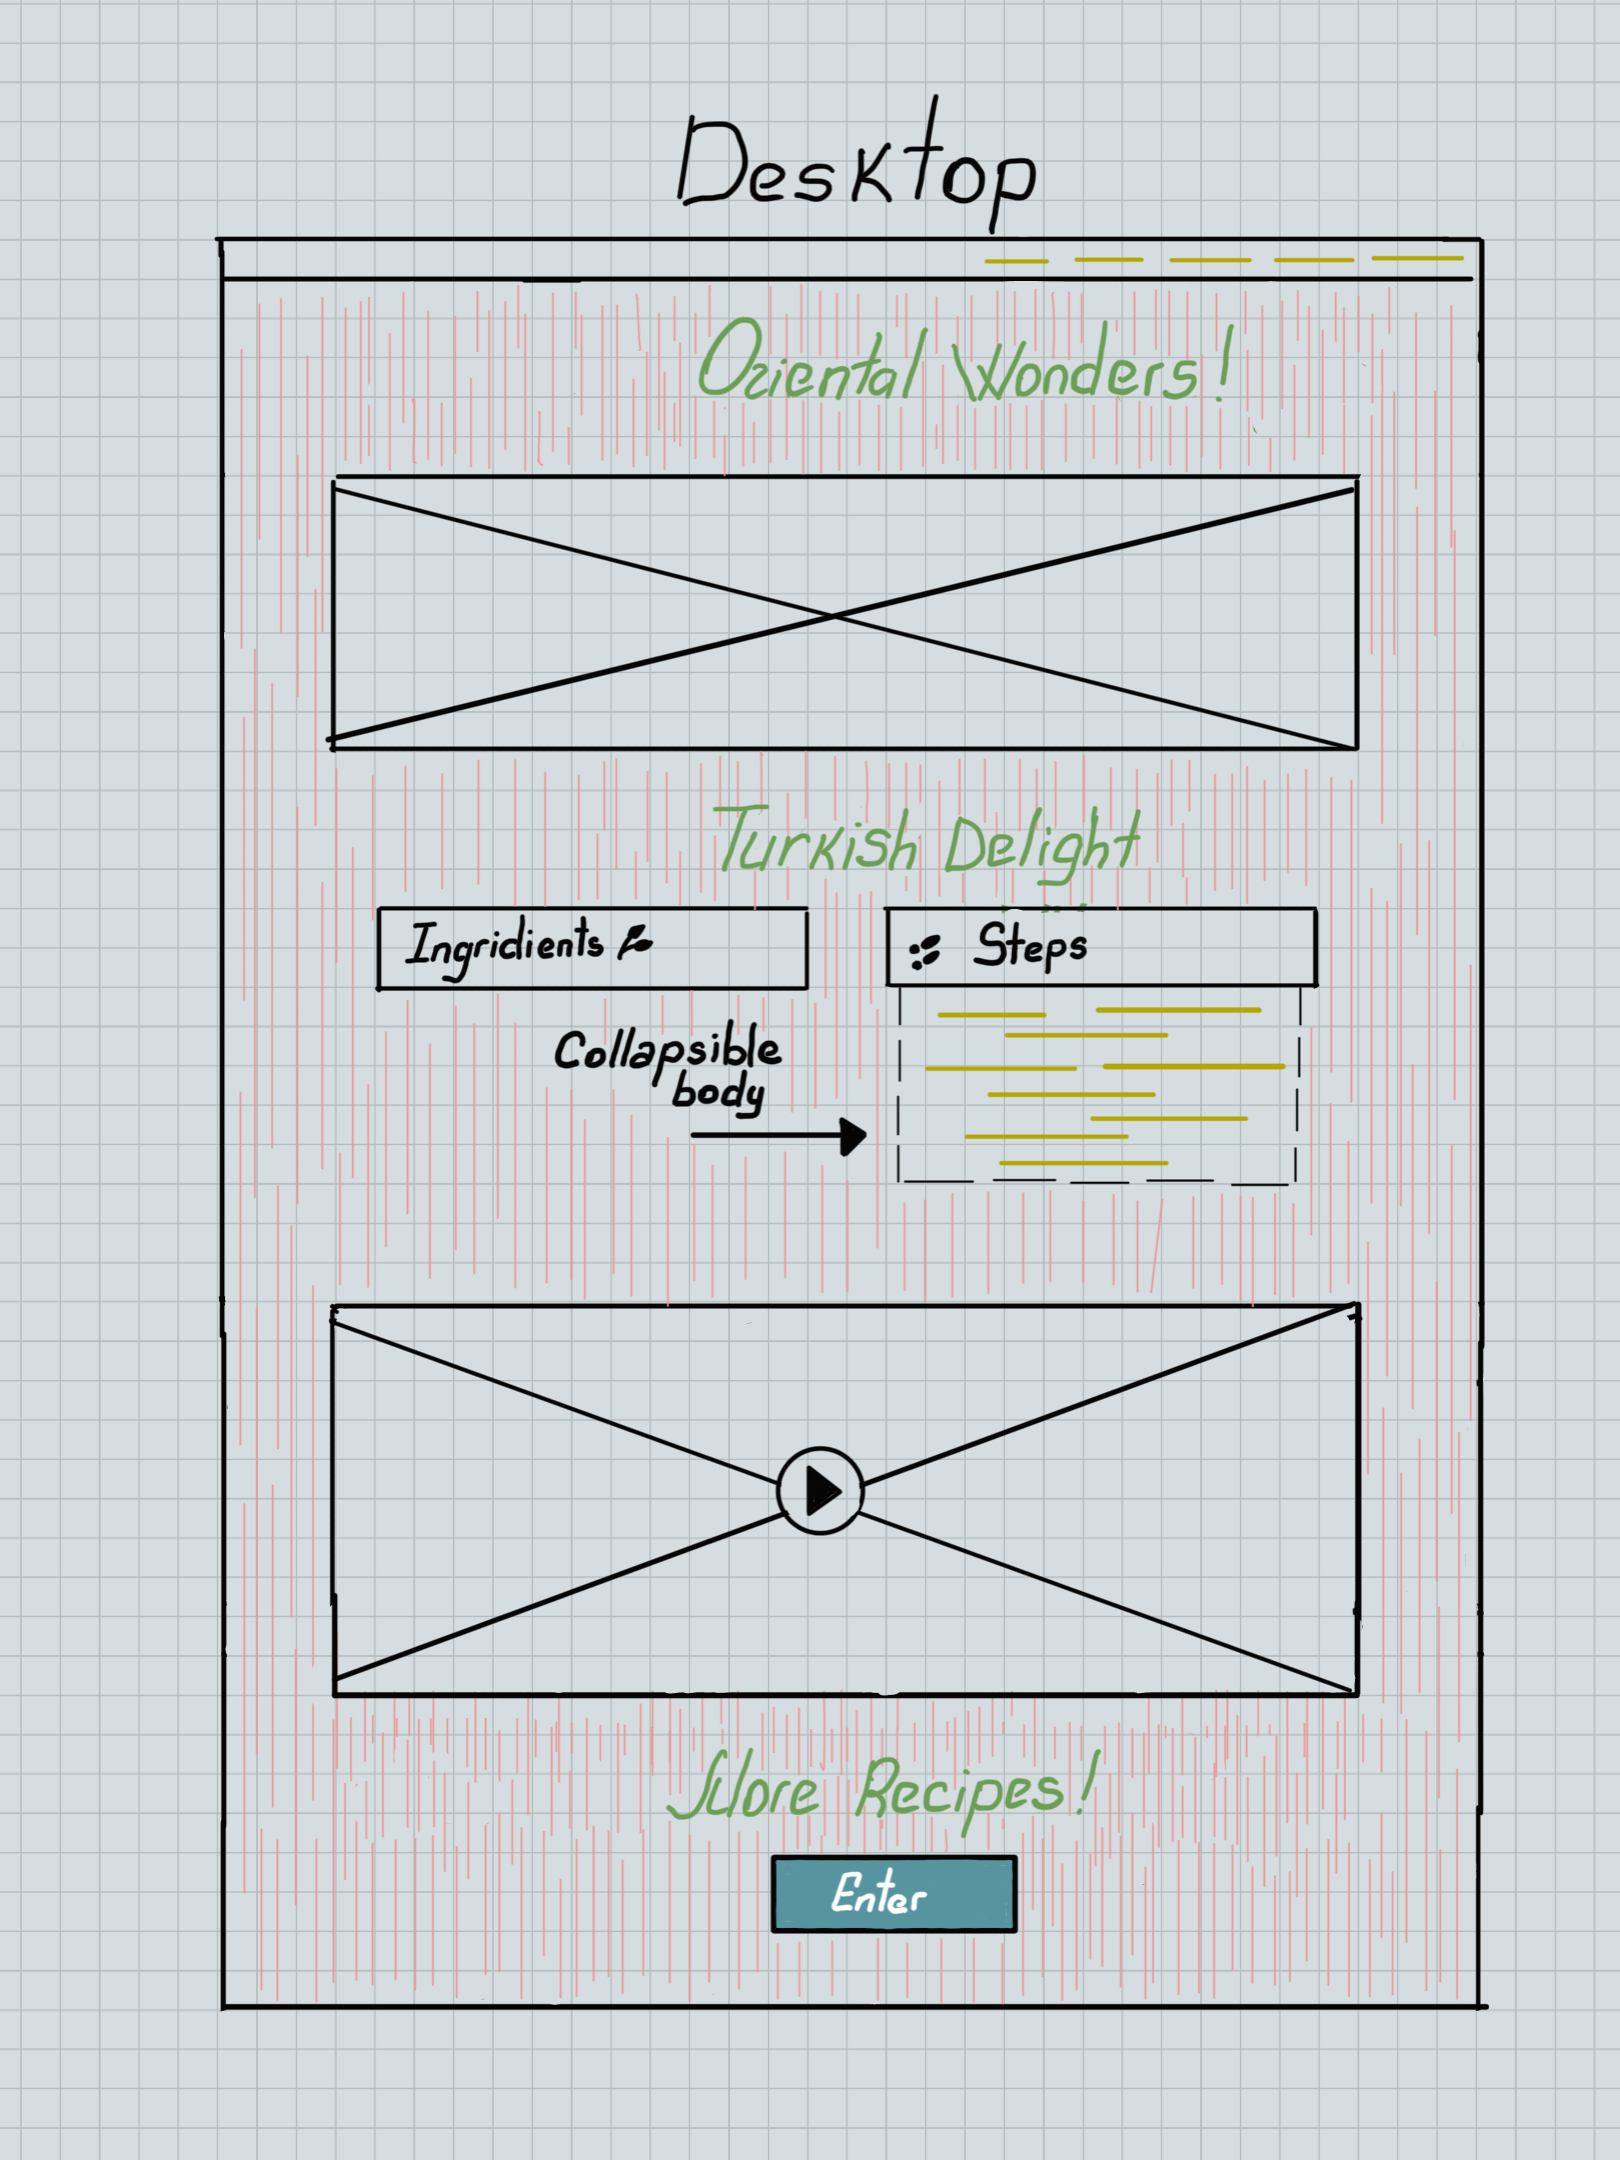 Desktop
Oriental Wonders!
Turkish Delight
Ingridients
Steps
Collapsible
body
More Recipes!
Enter